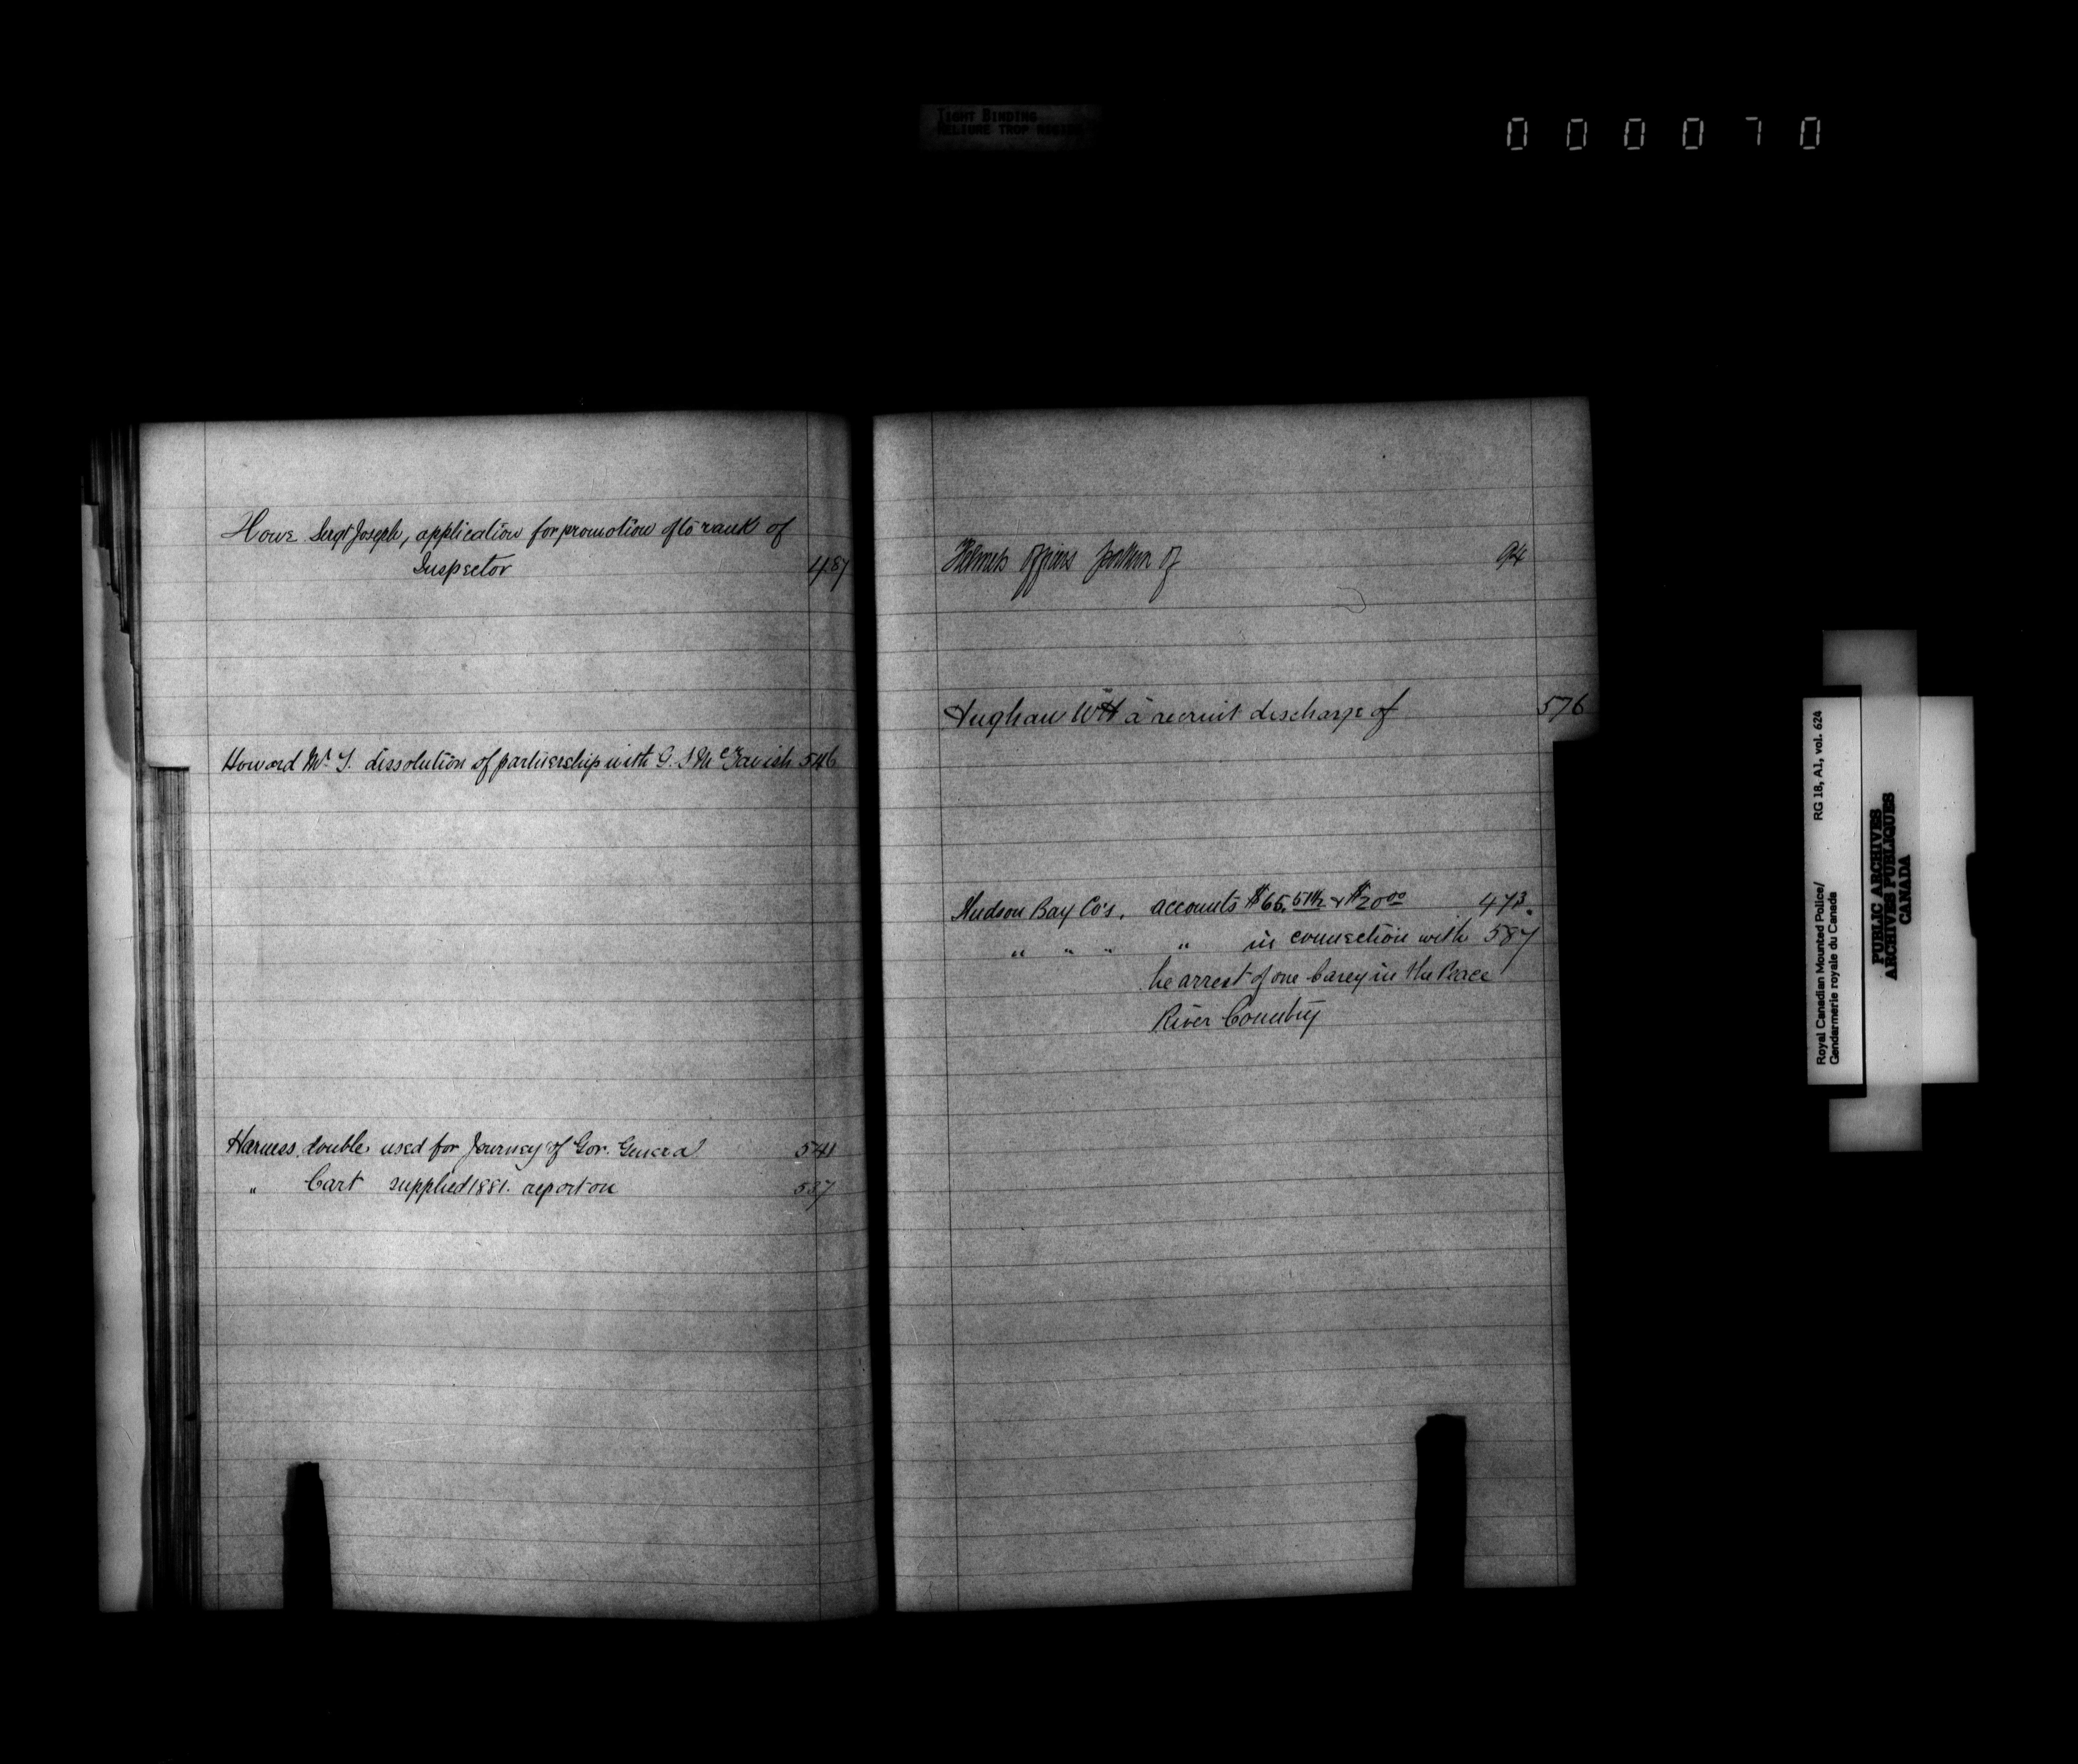 TIGHT BINDING
RELIURE TROP
000070
Howe Sergt Joseph, application for promotion of to rank of
Inspector 487
Howard Mr T. dissolution of partnership with G. S McTavish 546
Harness, double, used for Journey of Gov. General 541
" Cart supplied 1881. report on 537
Helmets officers pattern of 94
Hughan WH a recruit discharge of 576
Hudson Bay Co's, accounts $65. & $20 00 473.
" " " " in connection with 587
he arrest of one Carey in the Peace
River Country
Royal Canadian Mounted Police/ RG 18, A1, vol. 624
Gendarmerie royale du Canada
PUBLIC ARCHIVES
ARCHIVES PUBLIQUES
CANADA